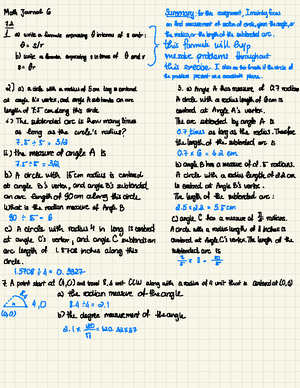 Math Journal 6
1.2
1 a) write a formula expressing θ interms of s and r:
θ = s/r
b) write a formula expressing s in terms of θ and r
s = θr
Summary: for this assignment, I mainly focus
on find measurement of section of circle, given the angle, or
the radius, or the length of the subtended arc.
this formula will help
measure problems throughout
this exercise. I also use the formula if the circle of
the problem present on a coordinate plane.
2) a) a circle with a radius of 5cm long is centered
at angle A's vertex, and angle A subtends an arc
length of 7.5 cm along this circle.
i) The subtended arc is how many times
as long as the circle's radius?
7.5 ÷ 5 = 3/2
ii.) the measure of angle A is
7.5 ÷ 5 = 3/2
b) A circle with 15cm radius is centered
at angle B's vertex, and angle B's subtended
an arc length of 90cm along this circle.
What is the radian measure of Angle B
90 ÷ 15 = 6
c) A circle with radius 4 in long is centered
at angle C's vertex, and angle C subtends an
arc length of 1.5708 inches along this
circle.
1.5708 ÷ 4 = 0.3927
3. a) Angle A has measure of 0.7 radian
A circle with a radius length of 6cm is
centered at Angle A's vertex.
The arc subtended by angle A is
0.7 times as long as the radius. Therefore
the length of the subtended arc is
0.7 × 6 = 4.2 cm.
b) angle B has a measure of 2.5 radians.
A circle with a radius length of 2.2 cm
is centered at Angle B's vertex.
The length of the subtended arc:
2.5 × 2.2 = 5.5 cm
c) angle C has a measure of radians.
A circle with a radius length of 8 inches is
centered at Angle C's vertex. The length of the
subtended arc is
7. A point start at (4,0) and travel 8.4 unit CCW along with a radius of 4 unit that is centered at (0,0)
4,0
(0,0)
a) the radian measure of the angle
8.4 ÷ 4 = 2.1
b) the degree measurement of the angle
2.1 × 180/π = 120.32